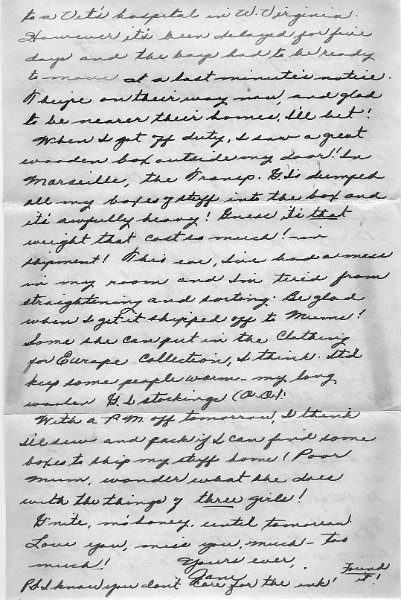 to a Vet's hospital in W. Virginia.
However it's been delayed for five
days and the boys had to be ready
to move at a last minute's notice.
They're on their way now, and glad
to be nearer their homes, I'll bet!
When I got off duty, I saw a great
wooden box outside my door! In
Marseille, the Transp. G.I.s dumped
all my boxes of stuff into the box and
it's awfully heavy! Guess it's that
weight that cost so much! - in
shipment! This eve, I've had a mess
in my room and I'm tired from
straightening and sorting. Be glad
when I get it shipped off to Mums!
Some she can put in the Clothing
for Europe Collection, I think. It'd
keep some people warm - my long
woolen G.I. stockings
With a P.M. off tomorrow, I think
I'll sew and pack if I can find some
boxes to ship my stuff home! Poor
Mum, wonder what she does
with the things of three girls!
G'nite, m'honey, until tomorrow
Love you, miss you, much - too
much! Yours ever,
Jane
P.S. I know you don't care for the ink! Found it!